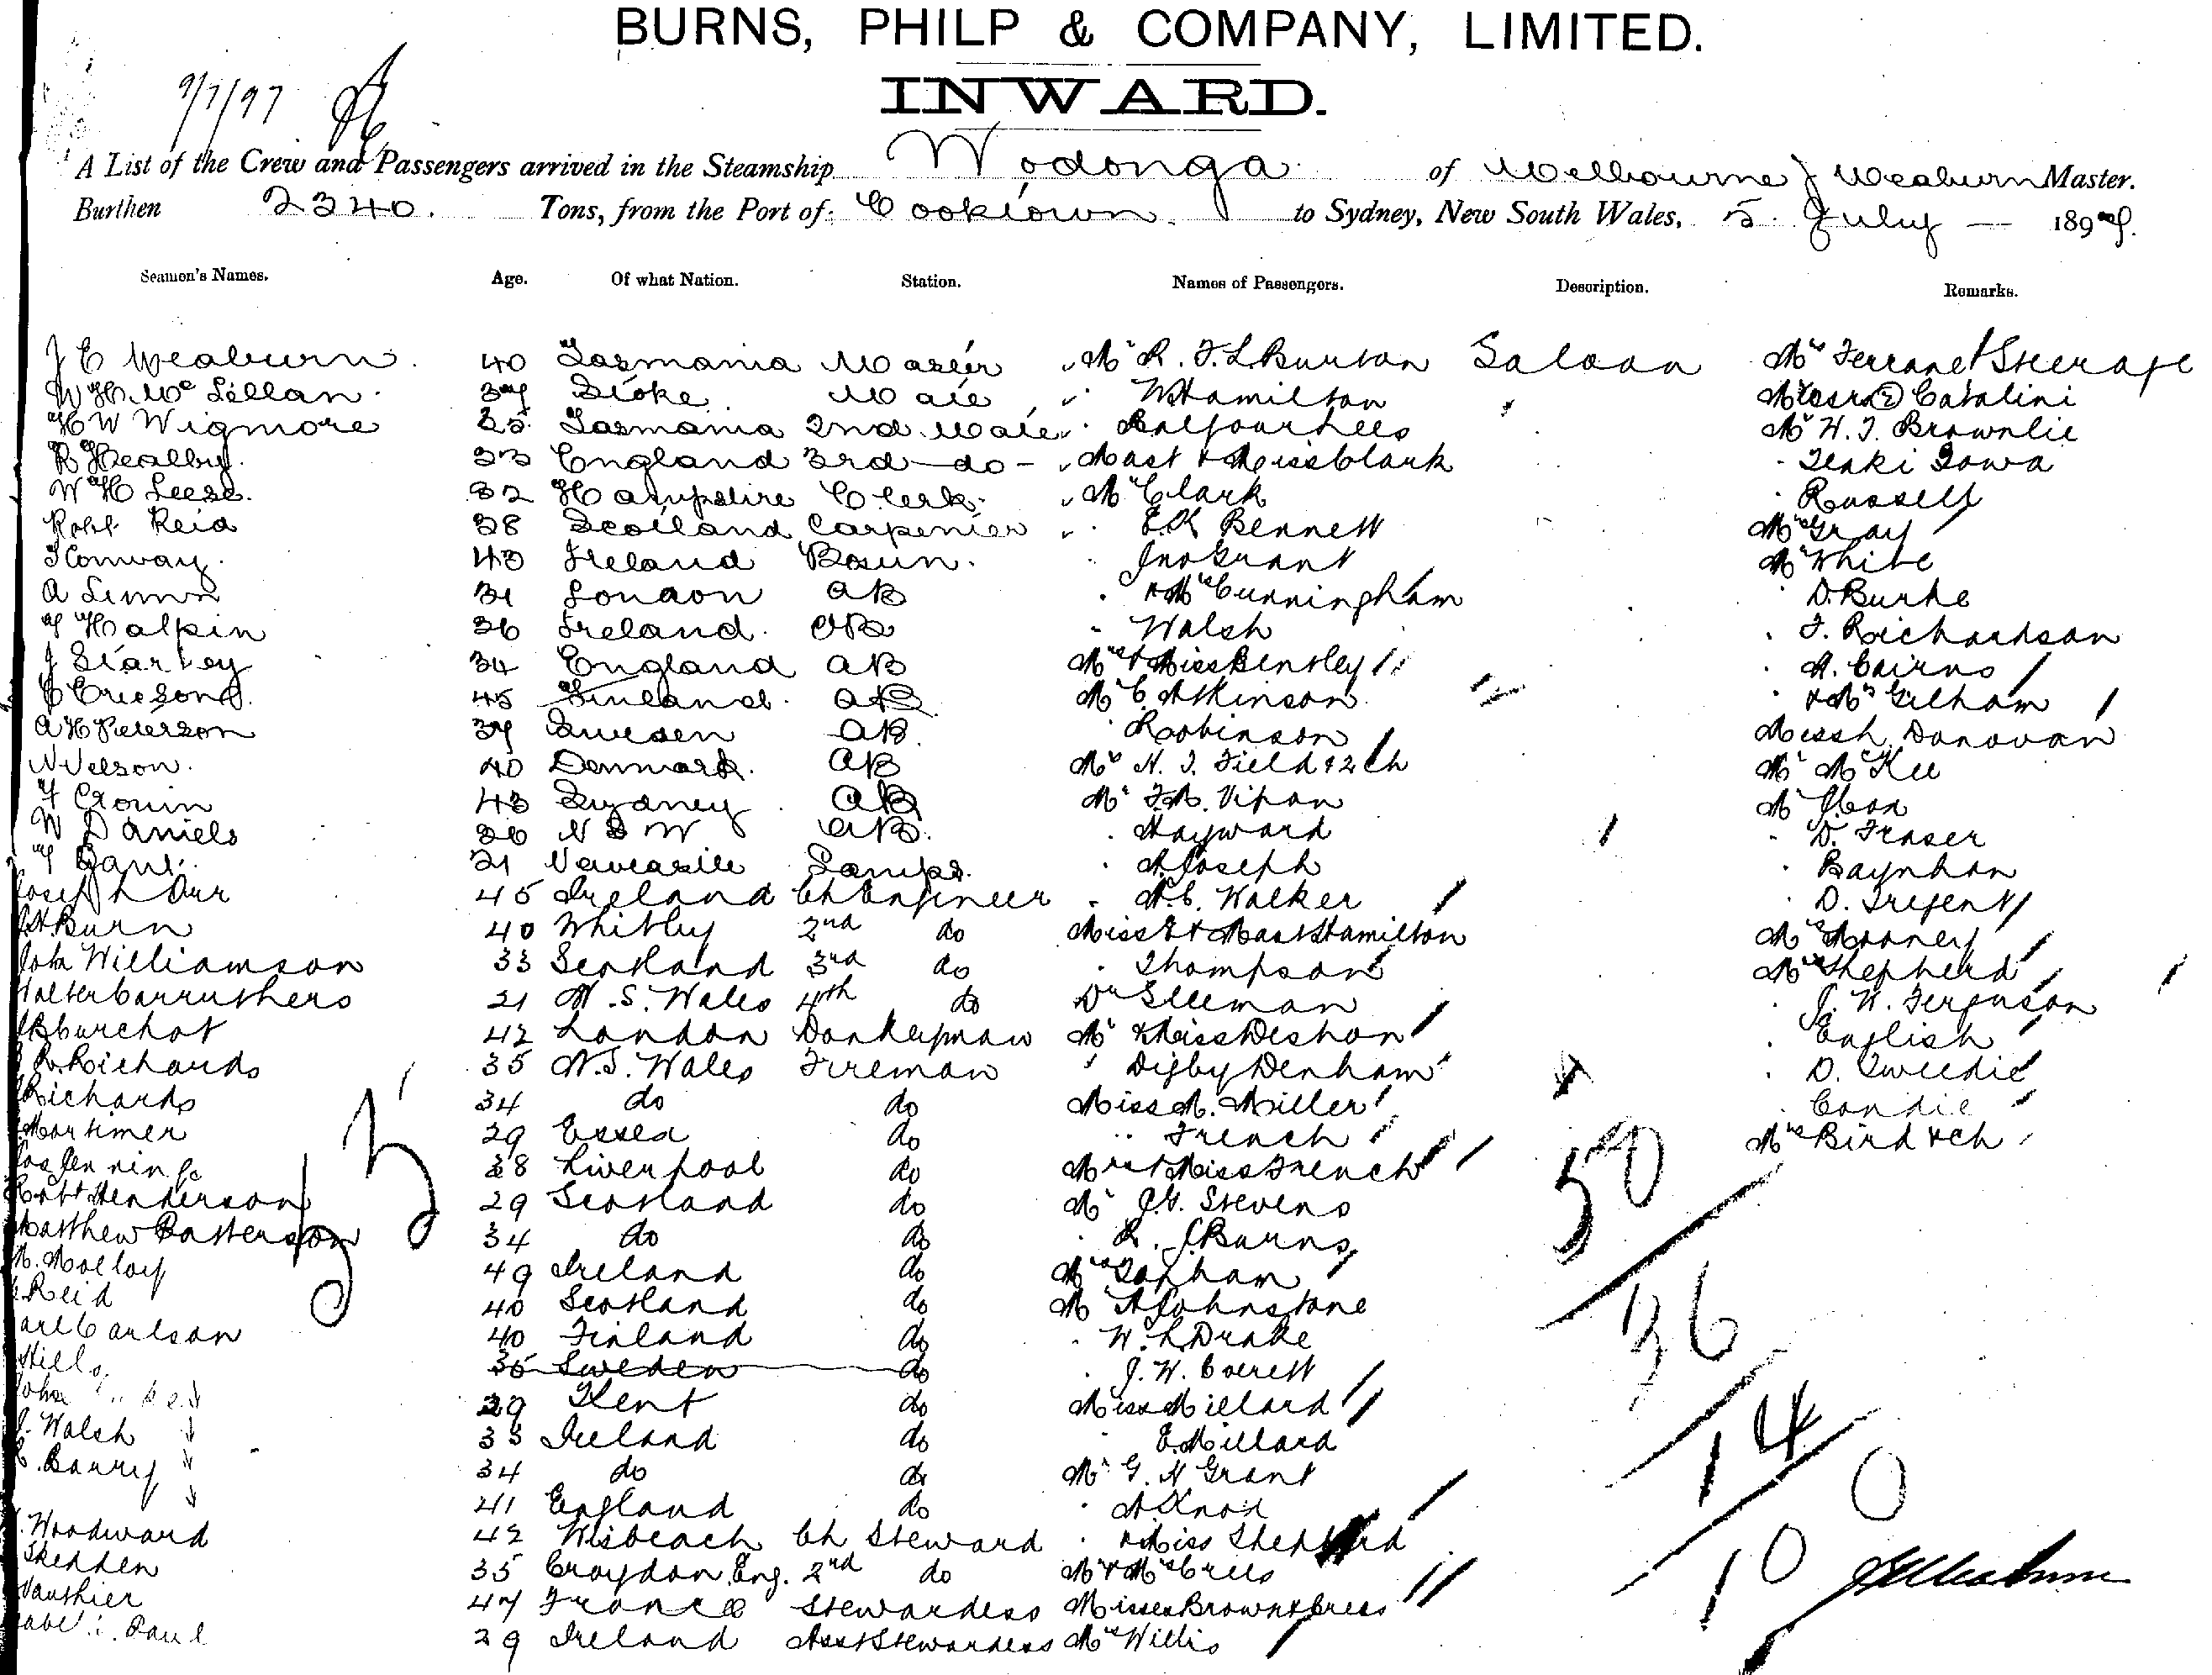 BURNS, PHILP & COMPANY, LIMITED.
INWARD.
9/7/97
A List of the Crew and Passengers arrived in the Steamship Wodonga of Melbourne J Meaburn Master.
Burthen 2340. Tons, from the Port of Cooktown to Sydney, New South Wales, 5 July 1897.
Seamen's Names. Age. Of what Nation. Station. Names of Passengers. Description. Remarks.
J E Meaburn. 40 Tasmania Master Mr R. F. L. Burton Saloon Mrs Steerage
W H. Mc Lellan. 37 Stoke Mate W Hamilton Messrs 2 Catalini
H W Wigmore 25 Tasmania 2nd Mate Balfour Lees Mr W. J. Brownlie
R Healby. 33 England 3rd do Mast & Miss Clark
W H Leese. 32 Hampshire Clerk. Mr Clark Russell
Robt Reid 38 Scotland Carpenter E. Bennett Mrs Gray
J Conway. 43 Ireland Bosun. Jno Grant Mr White
A 31 London AB & Mrs Cunningham D. Burke
Halpin 36 Ireland. AB Walsh J. Richardson
J Starkey 34 England AB Mrs & Miss Bensley A. Cairns
C Ericson. 45 Finland. AB Mr C. Atkinson & Mrs Gilham
A H Peterson 37 Sweden AB. Robinson Donovan
N Nelson. 40 Denmark. AB Mrs N. J. Field & 2 ch Mr McKee
Cronin 43 Sydney AB Mr Vipan Mr
W Daniels 26 N S W AB. Hayward D. Fraser
21 Newcastle Lamps. A. Joseph Baynhan
Joseph Orr 45 Ireland Ch Engineer A. C. Walker D. Tregent
Burn 40 Whitby 2nd do Miss & Mast Hamilton Mrs Mooney
John Williamson 33 Scotland 3rd do Thompson Mrs Shepherd
Walter Carruthers 21 N. S. Wales 4th do Dr Sleeman J. W. Ferguson
42 London Donkeyman Mr & Miss Deshon English
R. Richards 35 N. S. Wales Fireman Digby Denham D. Tweedie
Richards 34 do do Miss M. Miller Condie
Mortimer 29 Essex do French Mrs Bird & ch
Jas Jennings 38 Liverpool do Mrs & Miss French
Robt Henderson 29 Scotland do Mr J. G. Stevens
Matthew Patterson 34 do do R. J. Burns
M. Molloy 49 Ireland do Mrs Topham
Reid 40 Scotland do Mr A Johnstone
Carl Carlson 40 Finland do W. L. Drake
Hills 35 Sweden do J. W. Everett
John 29 Kent do Miss Millard
J. Walsh 33 Ireland do E. Millard
Barry 34 do do Mr G. H Grant
41 England do A. Knox
Woodward 42 Wisbeach Ch Steward & Miss Shepherd
Skedden 35 Croydon Eng. 2nd do Mr & Mrs Crees
Vauthier 47 France Stewardess Misses Brown & Crees
Paul 29 Ireland Asst Stewardess Mrs Willis
50
36
14
0
10
J E Meaburn